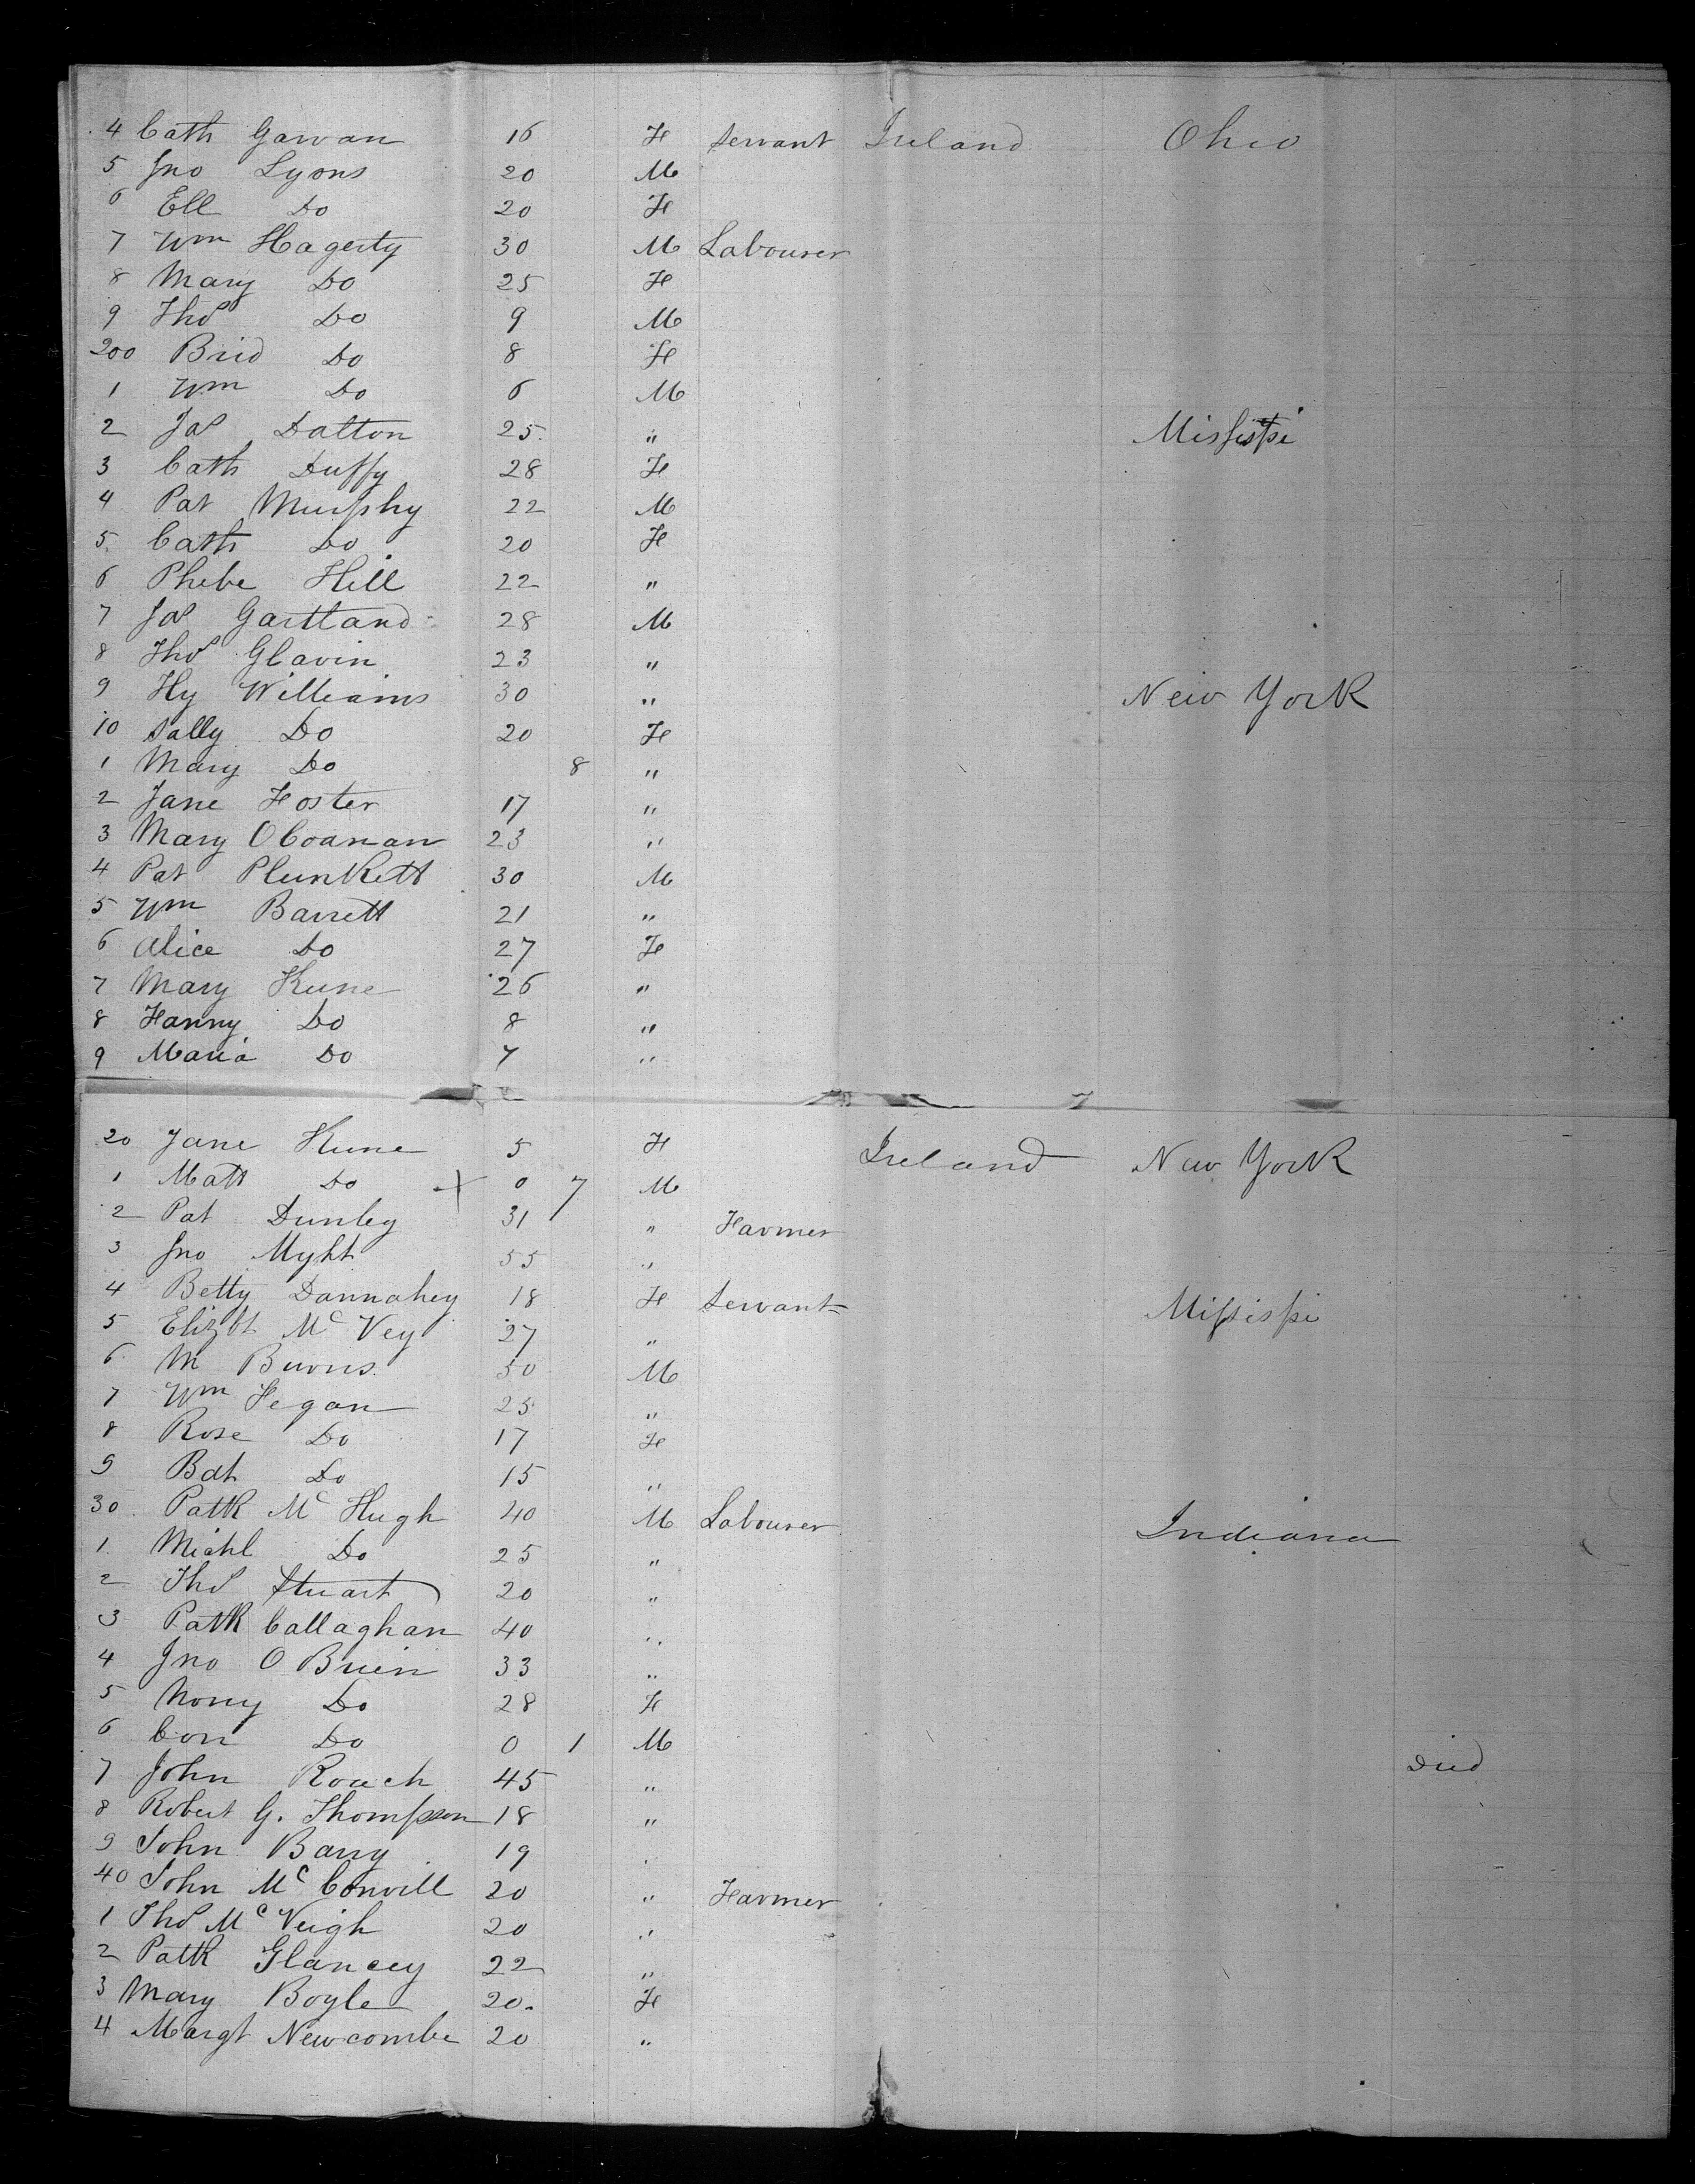 4 Cath Garvan 16 F Servant Ireland Ohio
5 Jno Lyons 20 M
6 Ell Do 20 F
7 Wm Hagerty 30 M Labourer
8 Mary Do 25 F
9 Thos Do 9 M
200 Brid Do 8 F
1 Wm Do 6 M
2 Jas Dalton 25 " Missisipi
3 Cath Duffy 28 F
4 Pat Murphy 22 M
5 Cath Do 20 F
6 Phebe Hill 22 "
7 Jas Gartland 28 M
8 Thos Glavin 23 "
9 Hy Williams 30 " New York
10 Sally Do 20 F
1 Mary Do 8 "
2 Jane Foster 17 "
3 Mary OConnan 23 "
4 Pat Plunkett 30 M
5 Wm Barrett 21 "
6 Alice Do 27 F
7 Mary Kune 26 "
8 Fanny Do 8 "
9 Maria Do 7 "
20 Jane Kune 5 F Ireland New York
1 Matt Do + 0 7 M
2 Pat Dunley 31 " Farmer
3 Jno Myht 55 "
4 Betty Dannahey 18 F Servant Missispi
5 Elizbt McVey 27 "
6 M Burns 30 M
7 Wm Fegan 25 "
8 Rose Do 17 F
9 Bdt Do 15 "
30 Patk McHugh 40 M Labourer Indiana
1 Michl Do 25 "
2 Thos Stuart 20 "
3 Patk Callaghan 40 "
4 Jno O Brien 33 "
5 Nony Do 28 F
6 Con Do 0 1 M
7 John Roach 45 " Died
8 Robert G. Thompson 18 "
9 John Barry 19 "
40 John McConvill 20 " Farmer
1 Thos McVeigh 20 "
2 Patk Glancey 22 "
3 Mary Boyle 20 F
4 Margt Newcombe 20 "